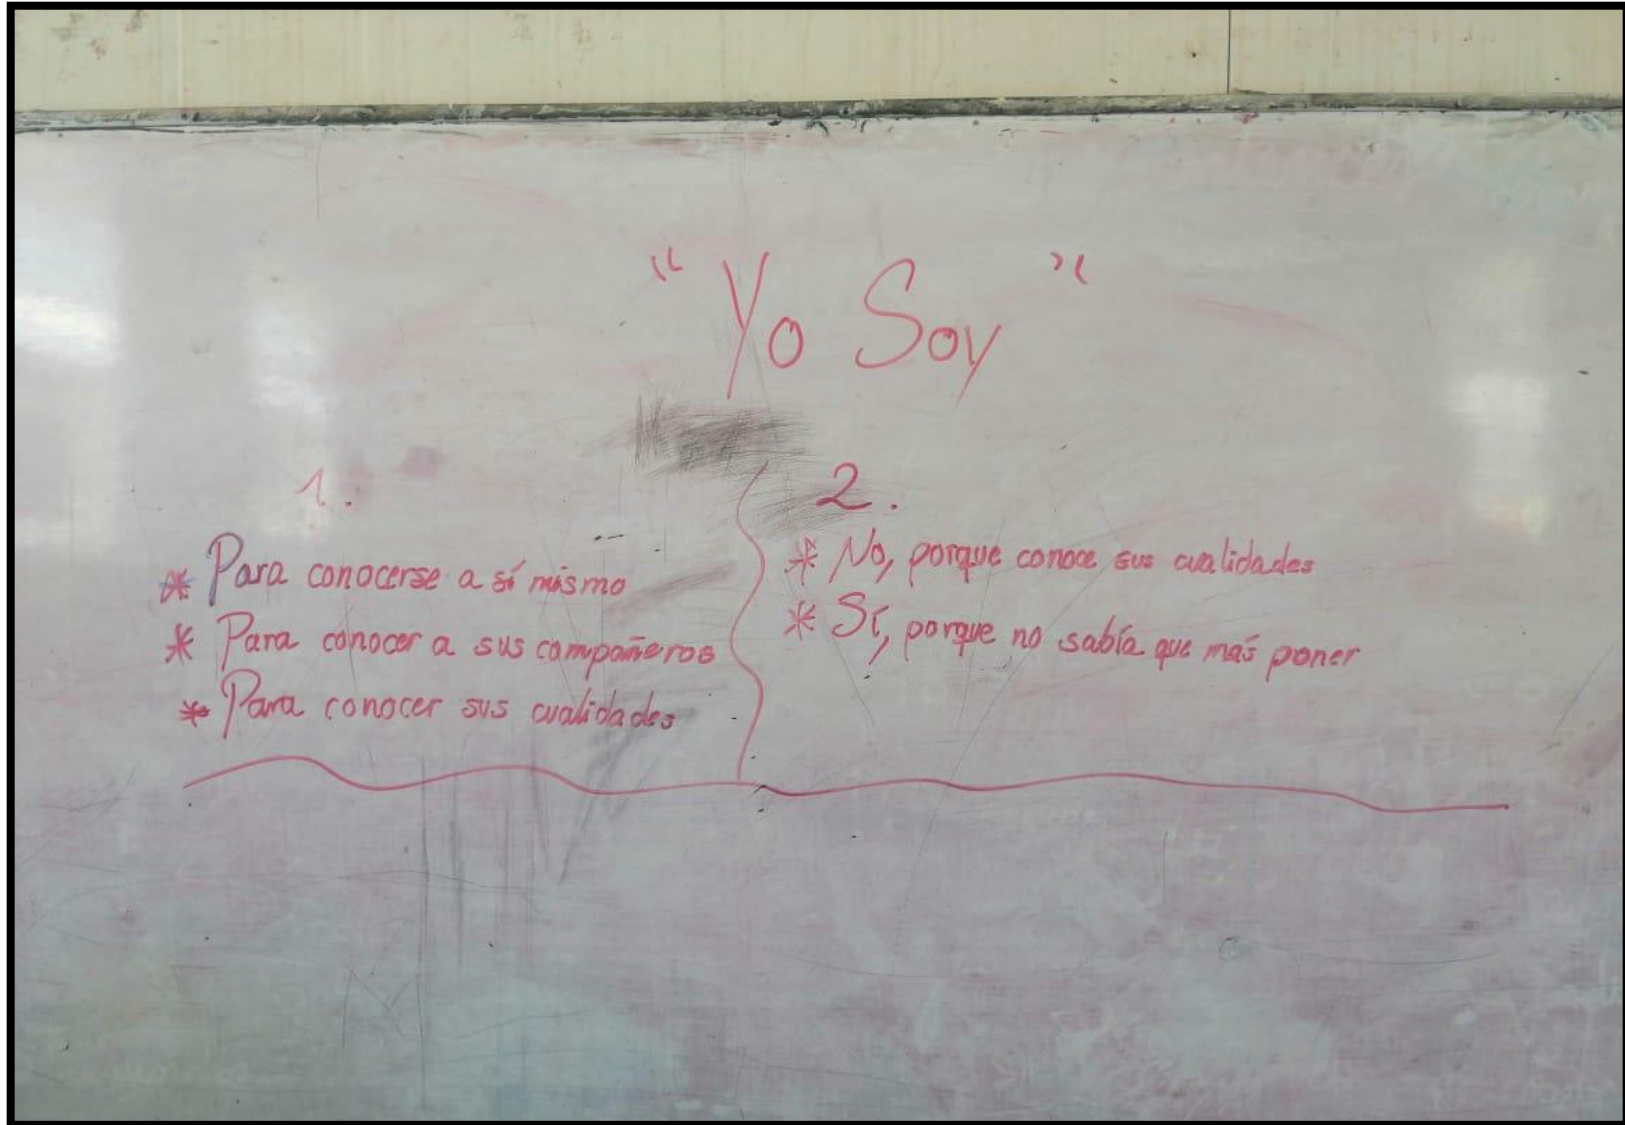 "Yo Soy"
1.
* Para conocerse a sí mismo
* Para conocer a sus compañeros
* Para conocer sus cualidades
2.
* No, porque conoce sus cualidades
* Sí, porque no sabía que más poner